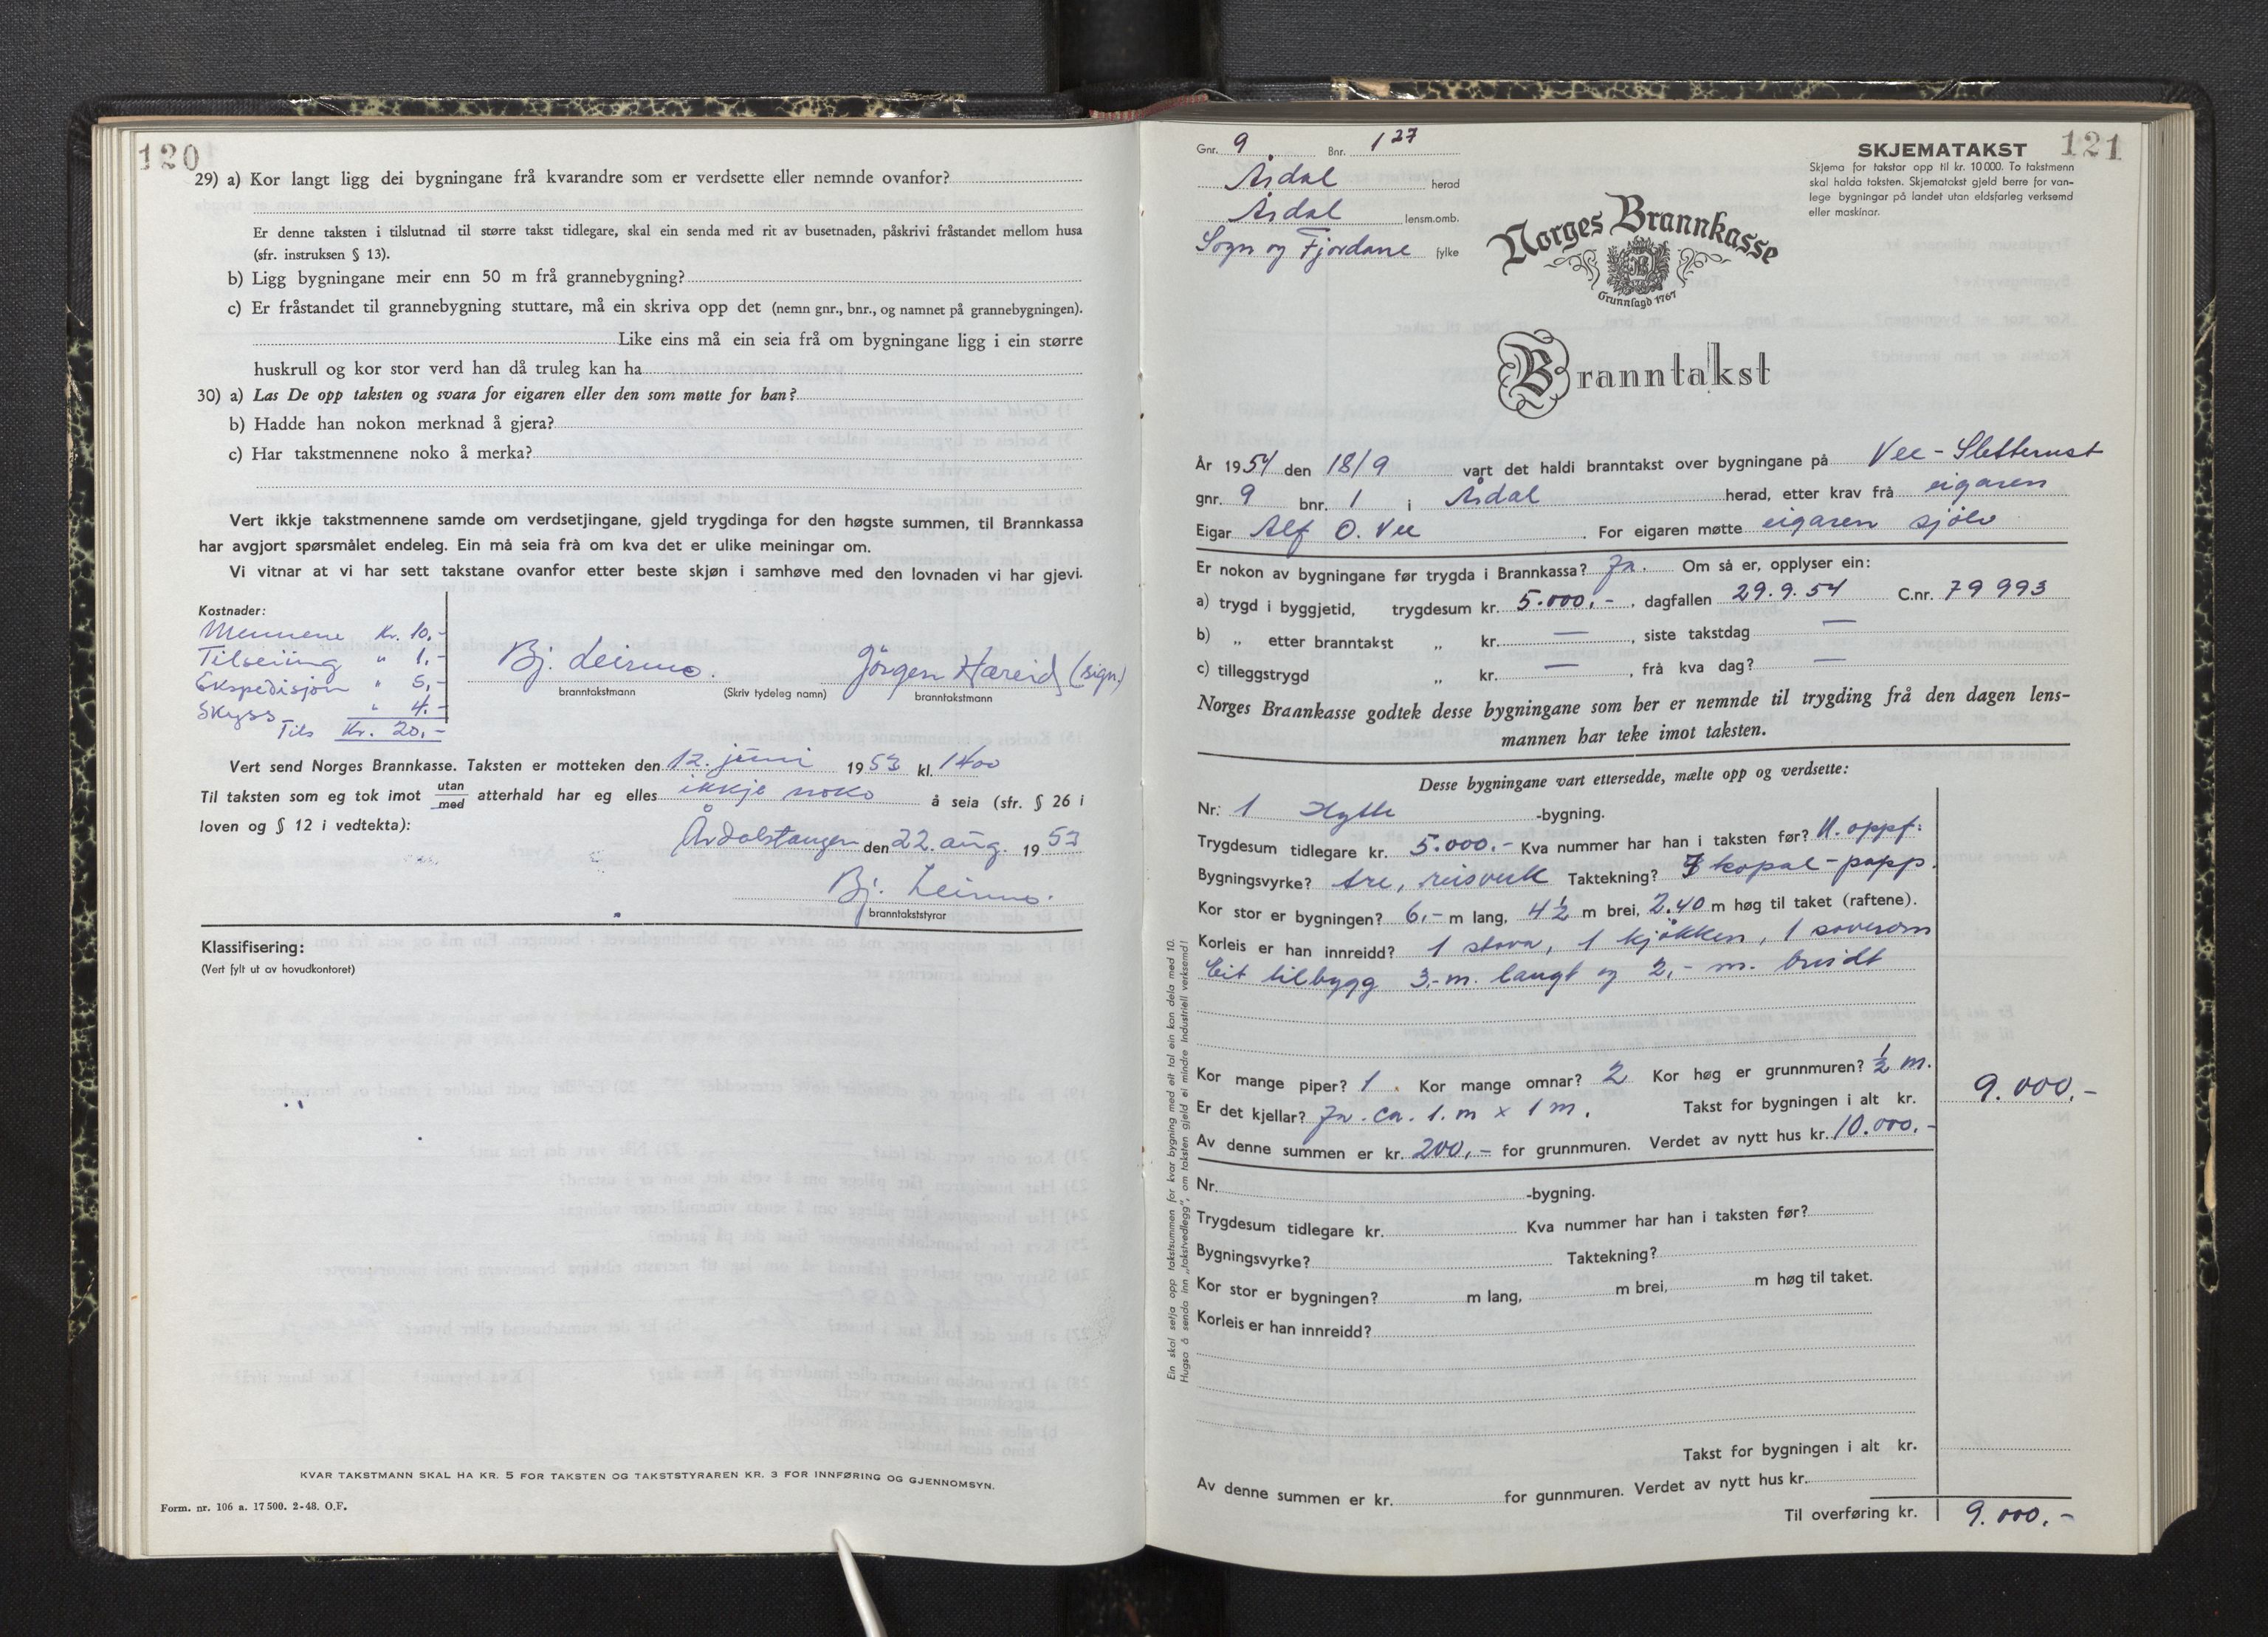 120
29) a) Kor langt ligg dei bygningane frå kvarandre som er verdsette eller nemnde ovanfor?
Er denne taksten i tilslutnad til større takst tidlegare, skal ein senda med rit av busetnaden, påskrivi fråstandet mellom husa
(sfr. instruksen § 13).
b) Ligg bygningane meir enn 50 m frå grannebygning?
c) Er fråstandet til grannebygning stuttare, må ein skriva opp det (nemn gnr., bnr., og namnet på grannebygningen).
Like eins må ein seia frå om bygningane ligg i ein større
huskrull og kor stor verd han då truleg kan ha
30) a) Las De opp taksten og svara for eigaren eller den som møtte for han?
b) Hadde han nokon merknad å gjera?
c) Har takstmennene noko å merka?
Vert ikkje takstmennene samde om verdsetjingane, gjeld trygdinga for den høgste summen, til Brannkassa
har avgjort spørsmålet endeleg. Ein må seia frå om kva det er ulike meiningar om.
Vi vitnar at vi har sett takstane ovanfor etter beste skjøn i samhøve med den lovnaden vi har gjevi.
Kostnader:
Mennene Kr. 10,-
Tilseiing " 1,-
Ekspedisjon " 5,-
Skyss " 4.-
Tils Kr. 20,-
Bj. Leirmo. Jörgen Hæreid (sign)
branntakstmann (Skriv tydeleg namn) branntakstmann
Vert send Norges Brannkasse. Taksten er motteken den 12. juni 1953 kl. 1400
Til taksten som eg tok imot utan/med atterhald har eg elles ikkje noko å seia (sfr. § 26 i
loven og § 12 i vedtekta):
Årdalstangen den 22. aug. 1953
Bj. Leirmo.
branntakststyrar
Klassifisering:
(Vert fylt ut av hovudkontoret)
KVAR TAKSTMANN SKAL HA KR. 5 FOR TAKSTEN OG TAKSTSTYRAREN KR. 3 FOR INNFØRING OG GJENNOMSYN.
Form. nr. 106 a. 17 500. 2-48. O.F.
121
Gnr. 9 Bnr. 1 27
Årdal herad
Årdal lensm.omb.
Sogn og Fjordane fylke
SKJEMATAKST
Skjema for takstar opp til kr. 10 000. To takstmenn
skal halda taksten. Skjematakst gjeld berre for van-
lege bygningar på landet utan eldsfarleg verksemd
eller maskinar.
Norges Brannkasse
Grunnlagd 1767
Branntakst
År 1954 den 18/9 vart det haldi branntakst over bygningane på Vee - Sletterust
gnr. 9 bnr. 1 i Årdal herad, etter krav frå eigaren
Eigar Alf O. Vee. For eigaren møtte eigaren sjölv
Er nokon av bygningane før trygda i Brannkassa? Ja. Om så er, opplyser ein:
a) trygd i byggjetid, trygdesum kr. 5.000,-, dagfallen 29.9.54 C.nr. 79993
b) „ etter branntakst „ kr. —, siste takstdag —
c) tilleggstrygd „ kr. —, frå kva dag? —
Norges Brannkasse godtek desse bygningane som her er nemnde til trygding frå den dagen lens-
mannen har teke imot taksten.
Desse bygningane vart ettersedde, mælte opp og verdsette:
Nr: 1 Hytte -bygning.
Trygdesum tidlegare kr. 5.000.- Kva nummer har han i taksten før? N. oppf:
Bygningsvyrke? tre, reisverk Taktekning? kopal-papp.
Kor stor er bygningen? 6,- m lang, 4½ m brei, 2.40 m høg til taket (raftene).
Korleis er han innreidd? 1 stova, 1 kjökken, 1 soverom
Eit tilbygg 3,- m. langt og 2,- m. breidt
Kor mange piper? 1. Kor mange omnar? 2 Kor høg er grunnmuren? ½ m.
Er det kjellar? Ja. ca. 1. m x 1 m. Takst for bygningen i alt kr. 9.000,-
Av denne summen er kr. 200,- for grunnmuren. Verdet av nytt hus kr. 10.000.-
Nr. -bygning.
Trygdesum tidlegare kr. Kva nummer har han i taksten før?
Bygningsvyrke? Taktekning?
Kor stor er bygningen? m lang, m brei, m høg til taket.
Korleis er han innreidd?
Takst for bygningen i alt kr.
Av denne summen er kr. for gunnmuren. Verdet av nytt hus kr.
Til overføring kr. 9.000.-
Ein skal setja opp takstsummen for kvar bygning med eit tal ein kan dela med 10.
Hugsa å senda inn „takstvedlegg", om taksten gjeld ei mindre industriell verksemd!